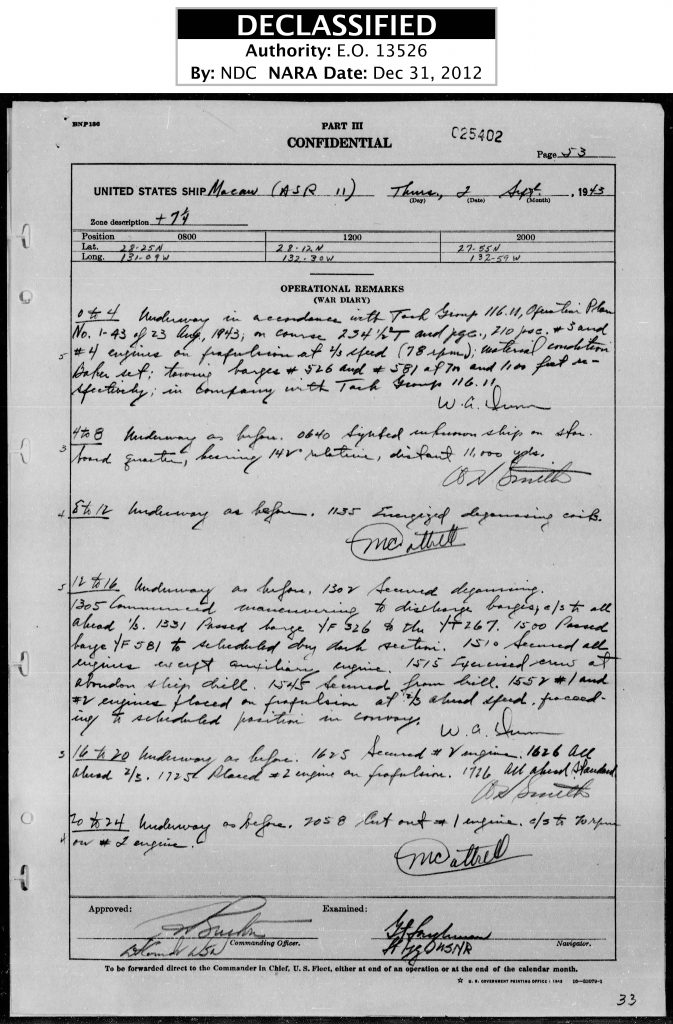 DECLASSIFIED
Authority: E.O. 13526
By: NDC NARA Date: Dec 31, 2012
BNP156
PART III
CONFIDENTIAL
C25402
Page 53
UNITED STATES SHIP Macaw (ASR 11) Thurs., 2 Sept., 1943
(Day) (Date) (Month)
Zone description + 7¼
Position 0800 1200 2000
Lat. 28-25N 28-12N 27-55N
Long. 131-09W 132-30W 132-59W
OPERATIONAL REMARKS
(WAR DIARY)
0 to 4 Underway in accordance with Task Group 116.11, Operation Plan
No. 1-43 of 23 Aug, 1943; on course 234½°T and pgc., 210 psc. #3 and
5 #4 engines on propulsion at ⅔ speed (78 rpm); material condition
Baker set; towing barges #526 and #581 at 700 and 1100 feet re-
spectively; in company with Task Group 116.11
W. A. Dunn
4 to 8 Underway as before. 0640 Sighted unknown ship on star-
3 board quarter, bearing 142 relative, distant 11,000 yds.
Smith
4 8 to 12 Underway as before. 1135 Energized degaussing coils.
5 12 to 16 Underway as before. 1302 Secured degaussing.
1305 Commenced maneuvering to discharge barges, c/s to all
ahead ⅓. 1331 Passed barge YF 526 to the YT 267. 1500 Passed
barge YF 581 to scheduled dry dock section. 1510 Secured all
engines except auxiliary engine. 1515 Exercised crew at
abandon ship drill. 1545 Secured from drill. 1552 #1 and
#2 engines placed on propulsion at ⅔ ahead speed, proceed-
ing to scheduled position in convoy.
W. A. Dunn
3 16 to 20 Underway as before. 1625 Secured #2 engine. 1626 All
ahead ⅔. 1725 Placed #2 engine on propulsion. 1726 All ahead Standard.
Smith
20 to 24 Underway as before. 2058 Cut out #1 engine. c/s to 70 rpm
4 on #2 engine.
Approved: Examined:
Commanding Officer. Navigator.
USNR
To be forwarded direct to the Commander in Chief, U. S. Fleet, either at end of an operation or at the end of the calendar month.
☆ U. S. GOVERNMENT PRINTING OFFICE : 1942
33